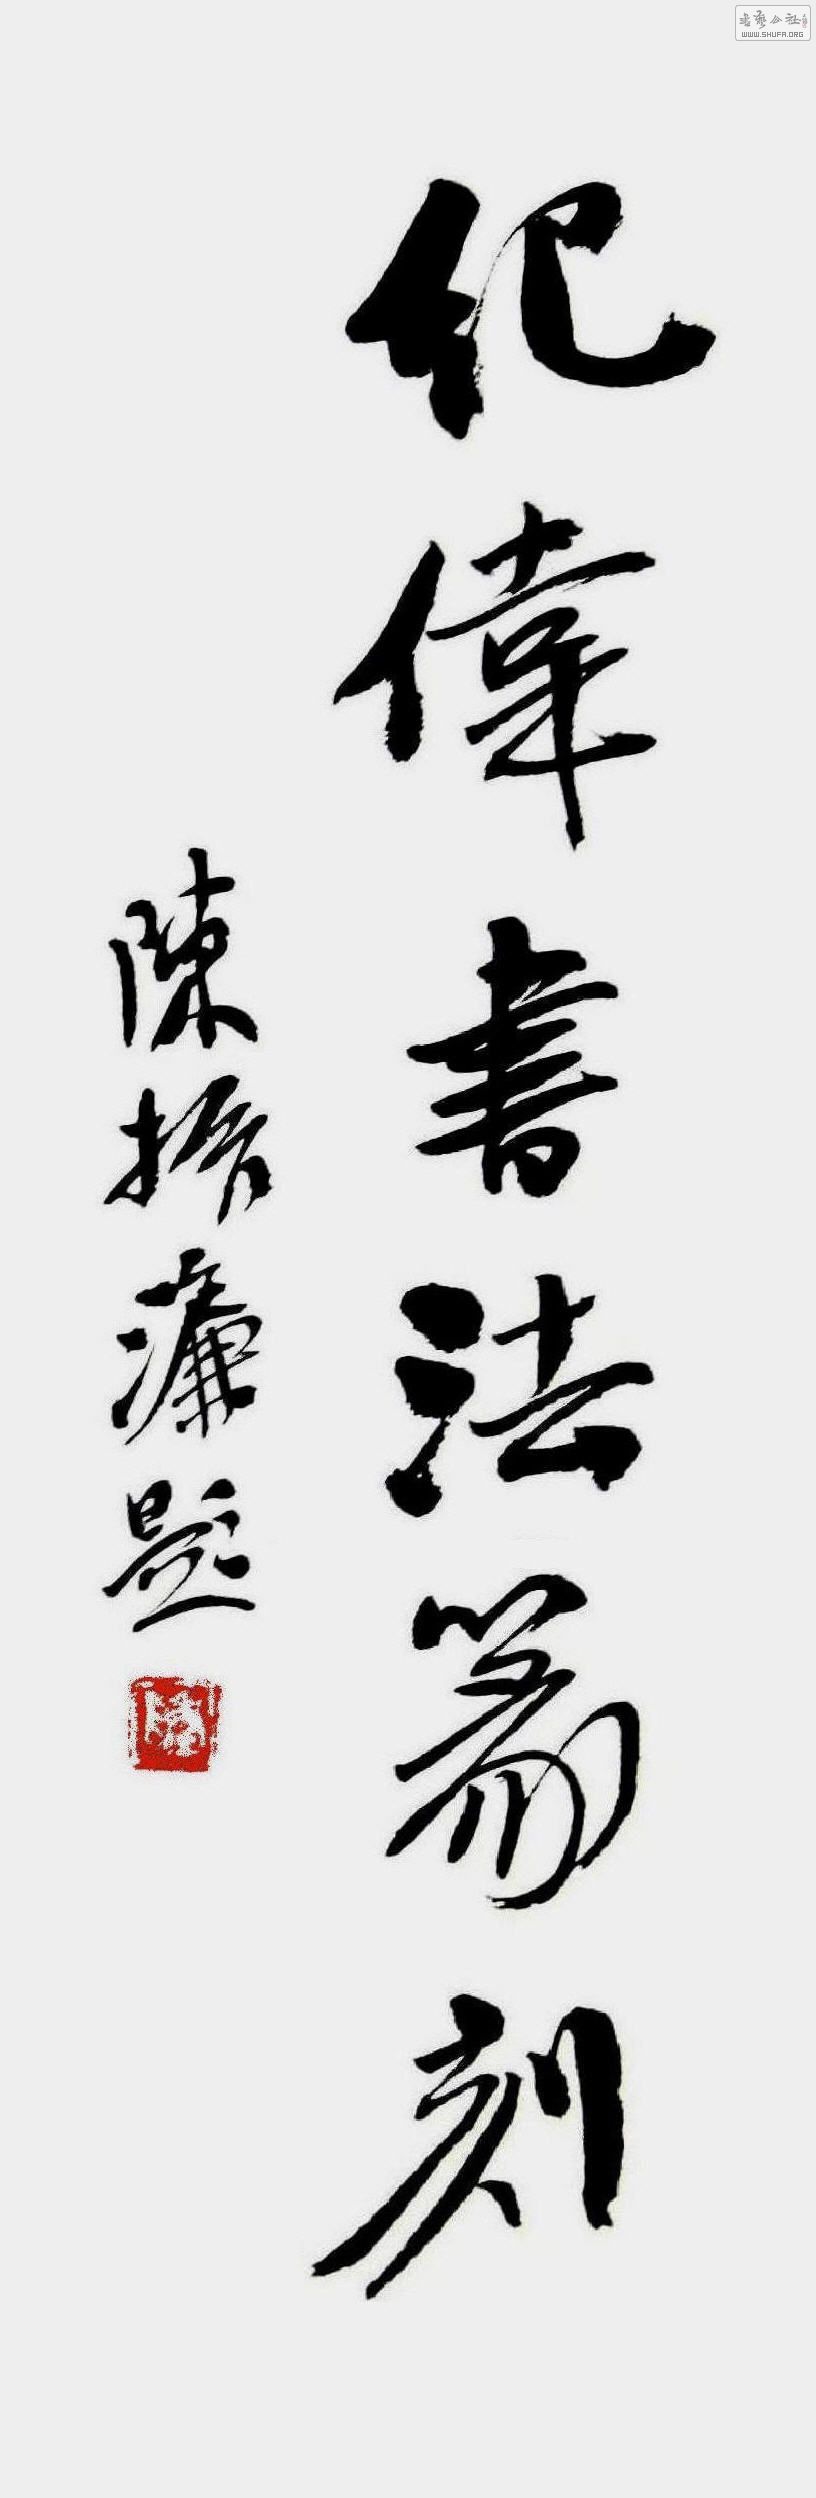 紀偉書法篆刻
陳振濂題
書藝公社
WWW.SHUFA.ORG